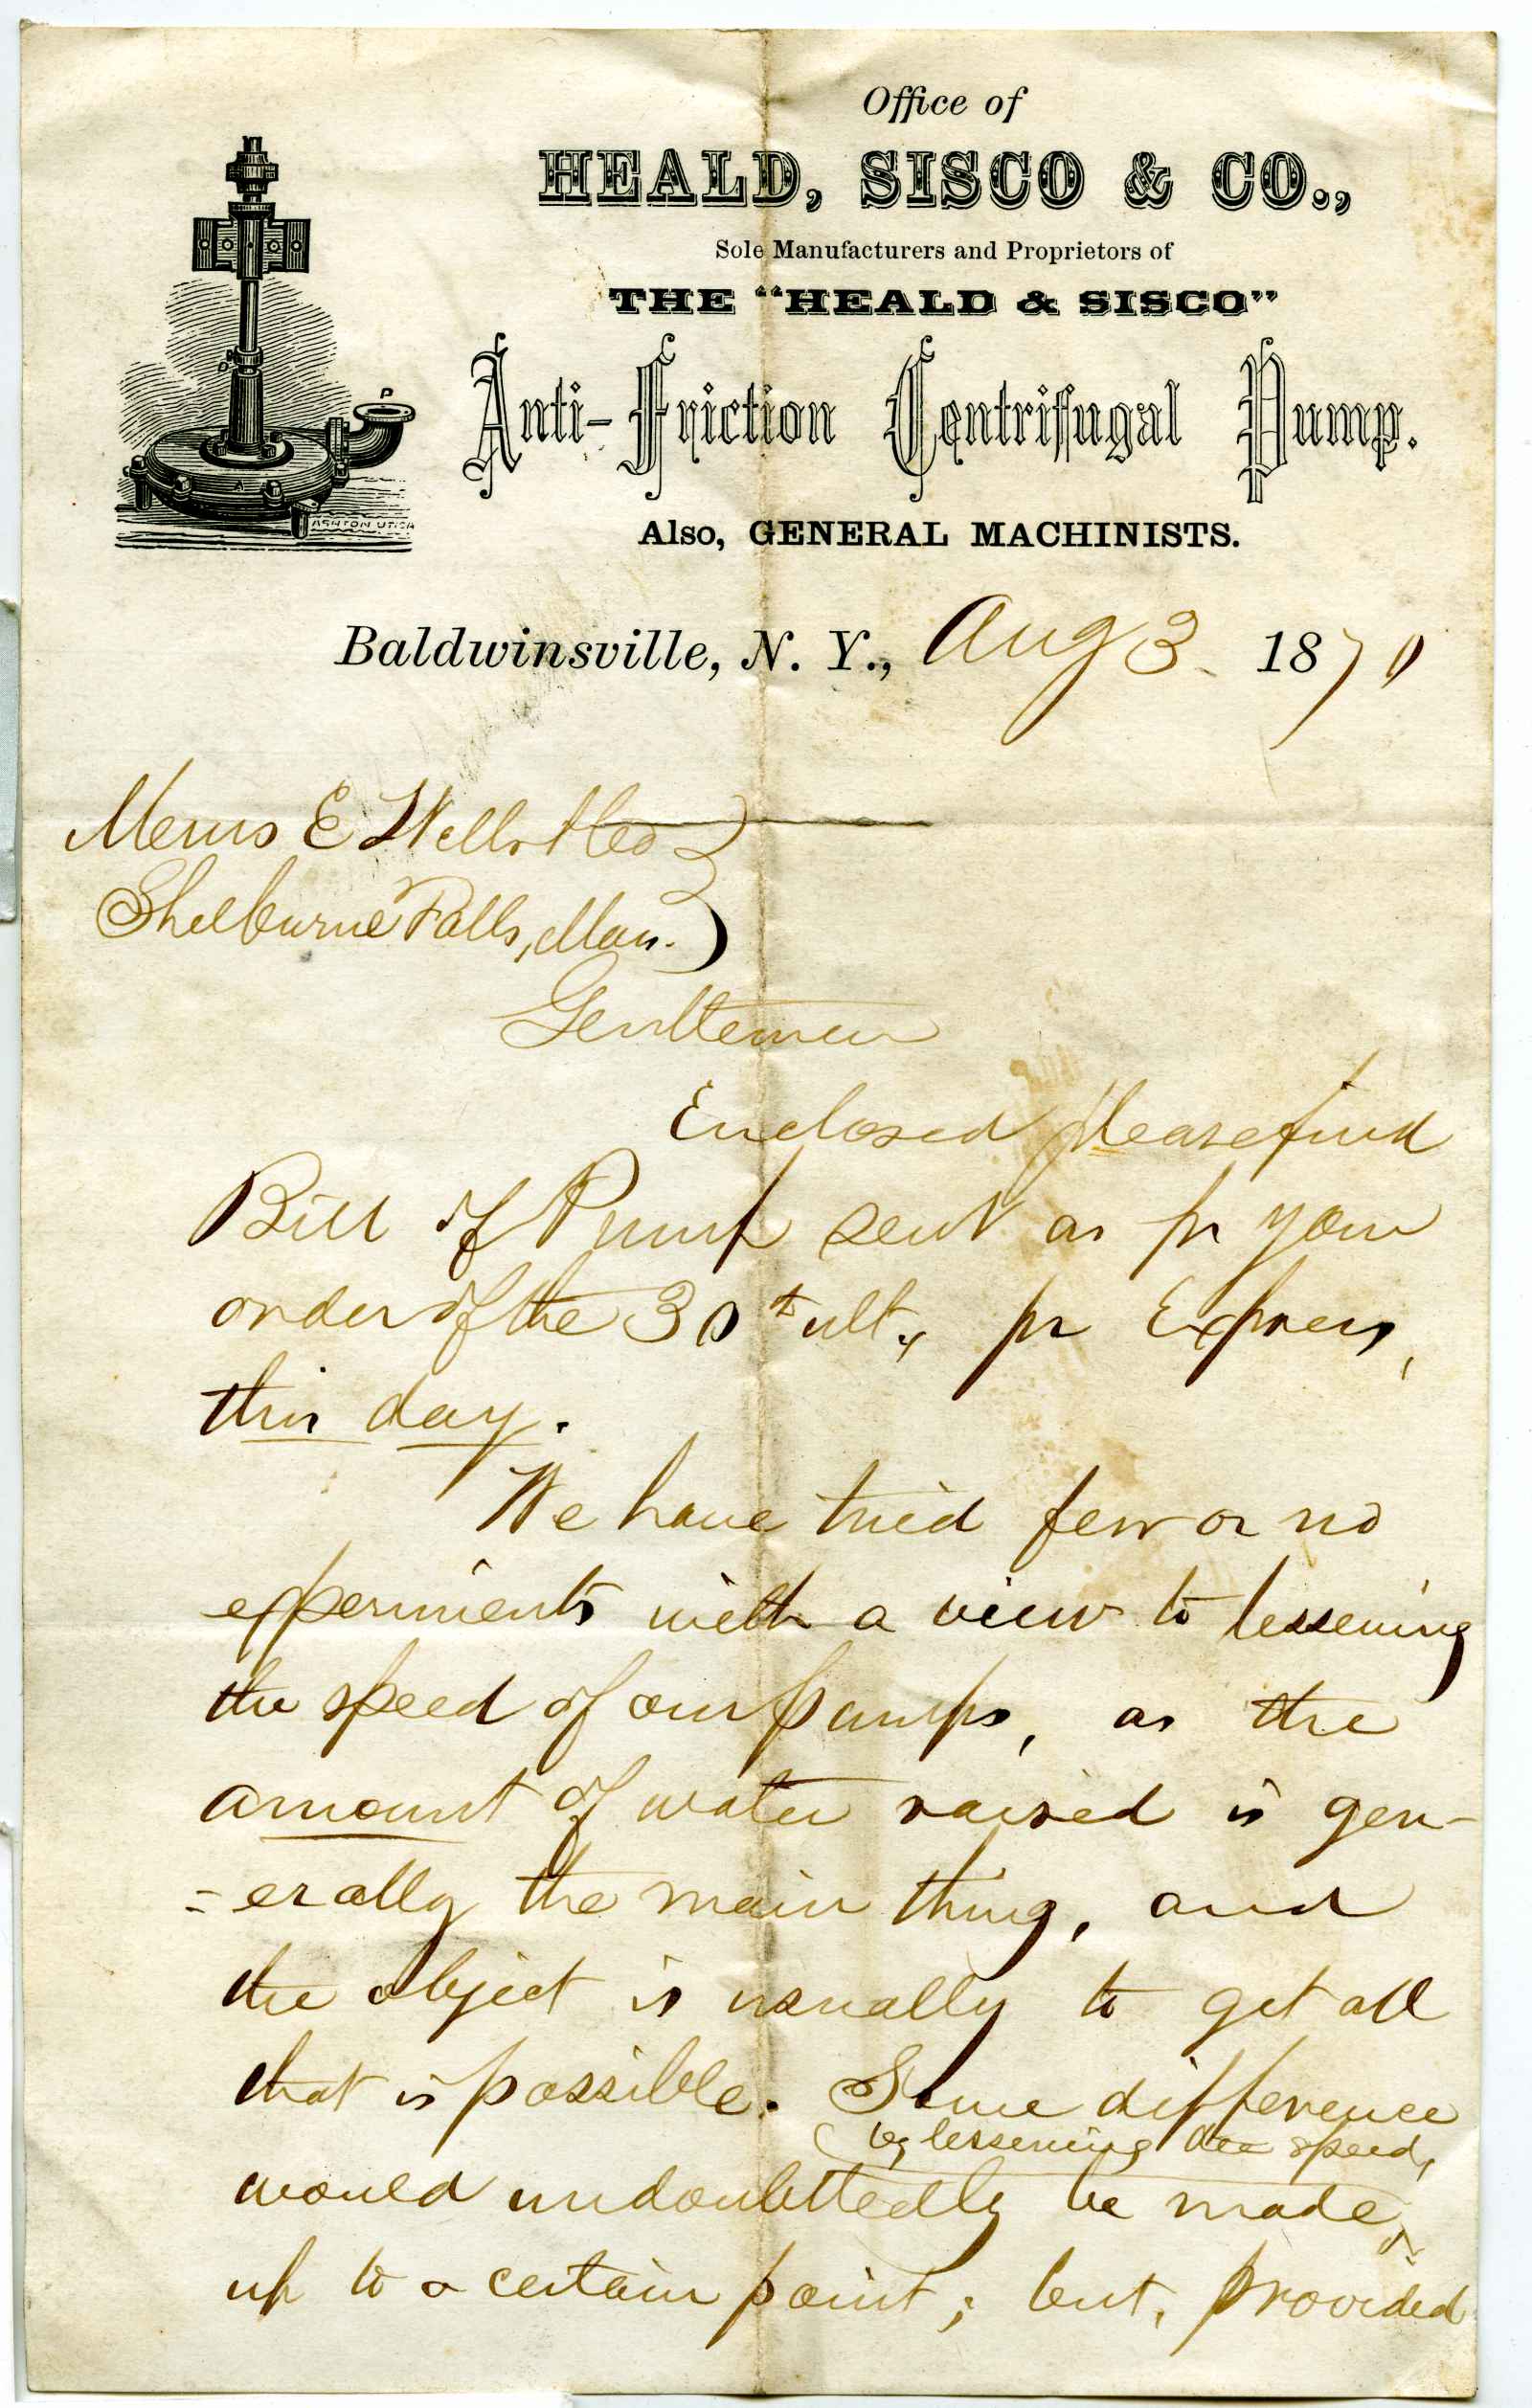 Office of
HEALD, SISCO & CO.,
Sole Manufacturers and Proprietors of
THE "HEALD & SISCO"
Anti-Friction Centrifugal Pump.
Also, GENERAL MACHINISTS.
P
A
ASHTON UTICA
Baldwinsville, N. Y., Aug 3. 1870
Messrs E Wells & Co
Shelburne Falls, Mass.
Gentlemen
Enclosed please find
Bill of Pump sent as pr your
order of the 30th ult., pr Express,
this day.
We have tried few or no
experiments with a view to lessening
the speed of our pumps, as the
amount of water raised is gen-
=erally the main thing, and
the object is usually to get all
that is possible. Some difference
by lessening the speed,
would undoubttedly be made,
up to a certain point; but, provided